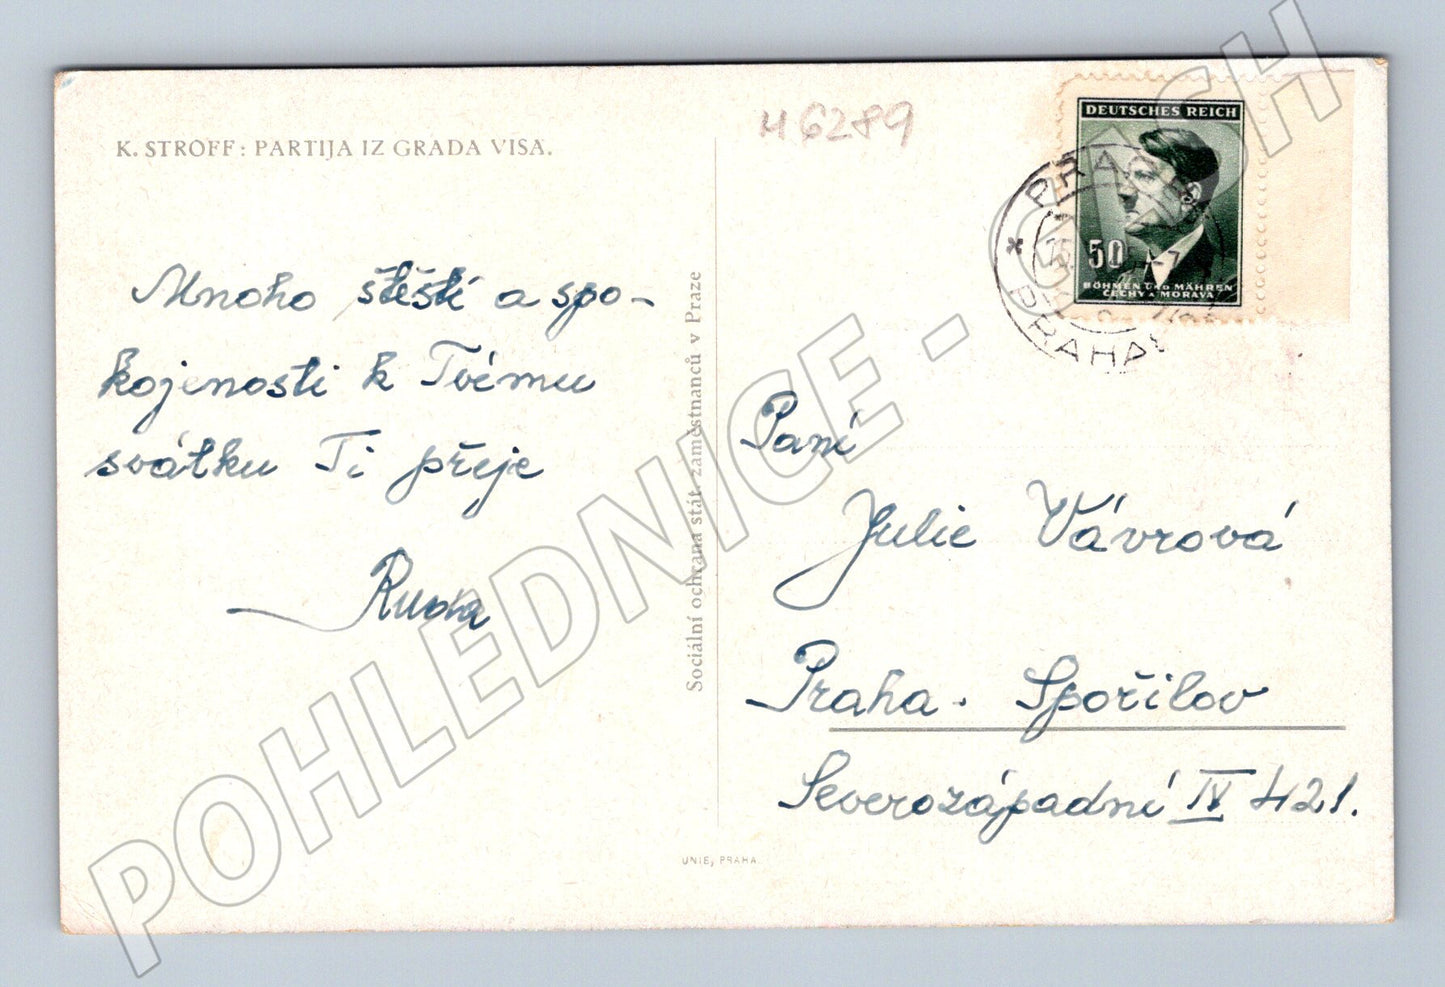 K. STROFF: PARTIJA IZ GRADA VISA.
Mnoho štěstí a spo-
kojenosti k Tvému
svátku Ti přeje
Ruda
Sociální ochrana stát. zaměstnanců v Praze
UNIE, PRAHA
H 6289
DEUTSCHES REICH
50
BÖHMEN UND MÄHREN
ČECHY A MORAVA
PRAHA
Paní
Julie Vávrová
Praha. Spořilov
Severozápadní IV 421.
POHLEDNICE - CASH